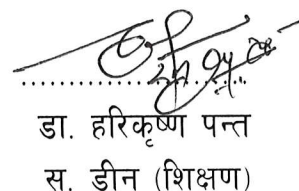 डा. हरिकृष्ण पन्त
स. डीन (शिक्षण)